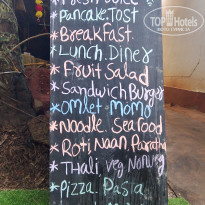 TOP HOTELS
* Pancake. Tost
* Breakfast.
* Lunch. Diner
* Fruit Salad
* Sandwich Burger
* Omlet Momo
* Noodle. Seafood
* Roti Naan. Paratha
* Thali veg Nonveg
* Pizza. Pasta